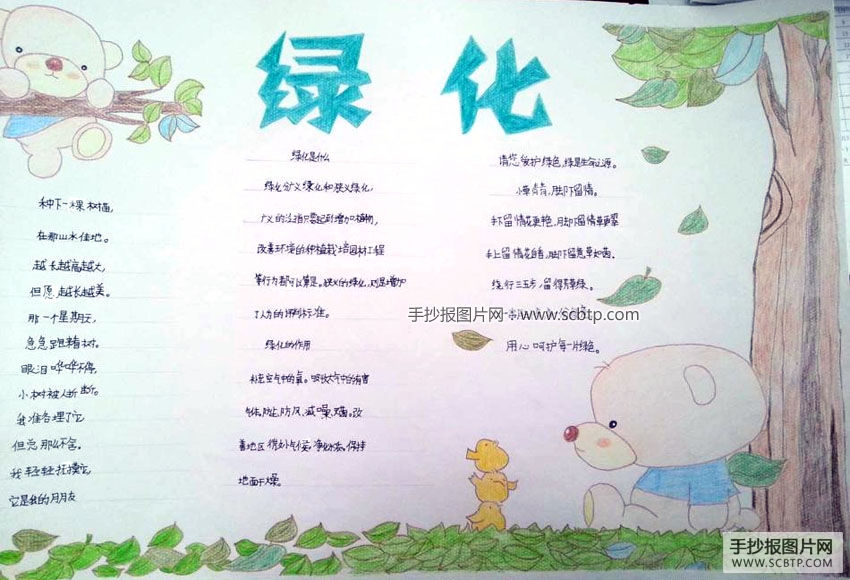 绿化
种下一棵树苗,
在那山水佳地。
越长越高越大,
但愿越长越美。
那一个星期天,
急急跑去看树。
眼泪哗哗不停,
小树被人折断。
我准备埋了它
但总那么不舍。
我轻轻抚摸它,
它是我的朋友
绿化是什么
绿化分广义绿化和狭义绿化,
广义的泛指只要起到增加植物,
改善环境的种植栽培园林工程
等行为都可以算是。狭义的绿化,则是增加
了人为的评判标准。
绿化的作用
补充空气中的氧。吸收大气中的有害
气体,防尘,防风,减噪,灭菌。改
善地区
气候。净水。保持
地面干燥。
请您爱护绿色,绿是生命之源。
小草青青,脚下留情。
手下留情花更艳,脚下留情草更翠
手上留情花自香,脚下留意草如茵。
绕行三五方,留得芳草绿。
用心呵护每一片绿色。
手抄报图片网 www.scbtp.com
手抄报图片网
WWW.SCBTP.COM